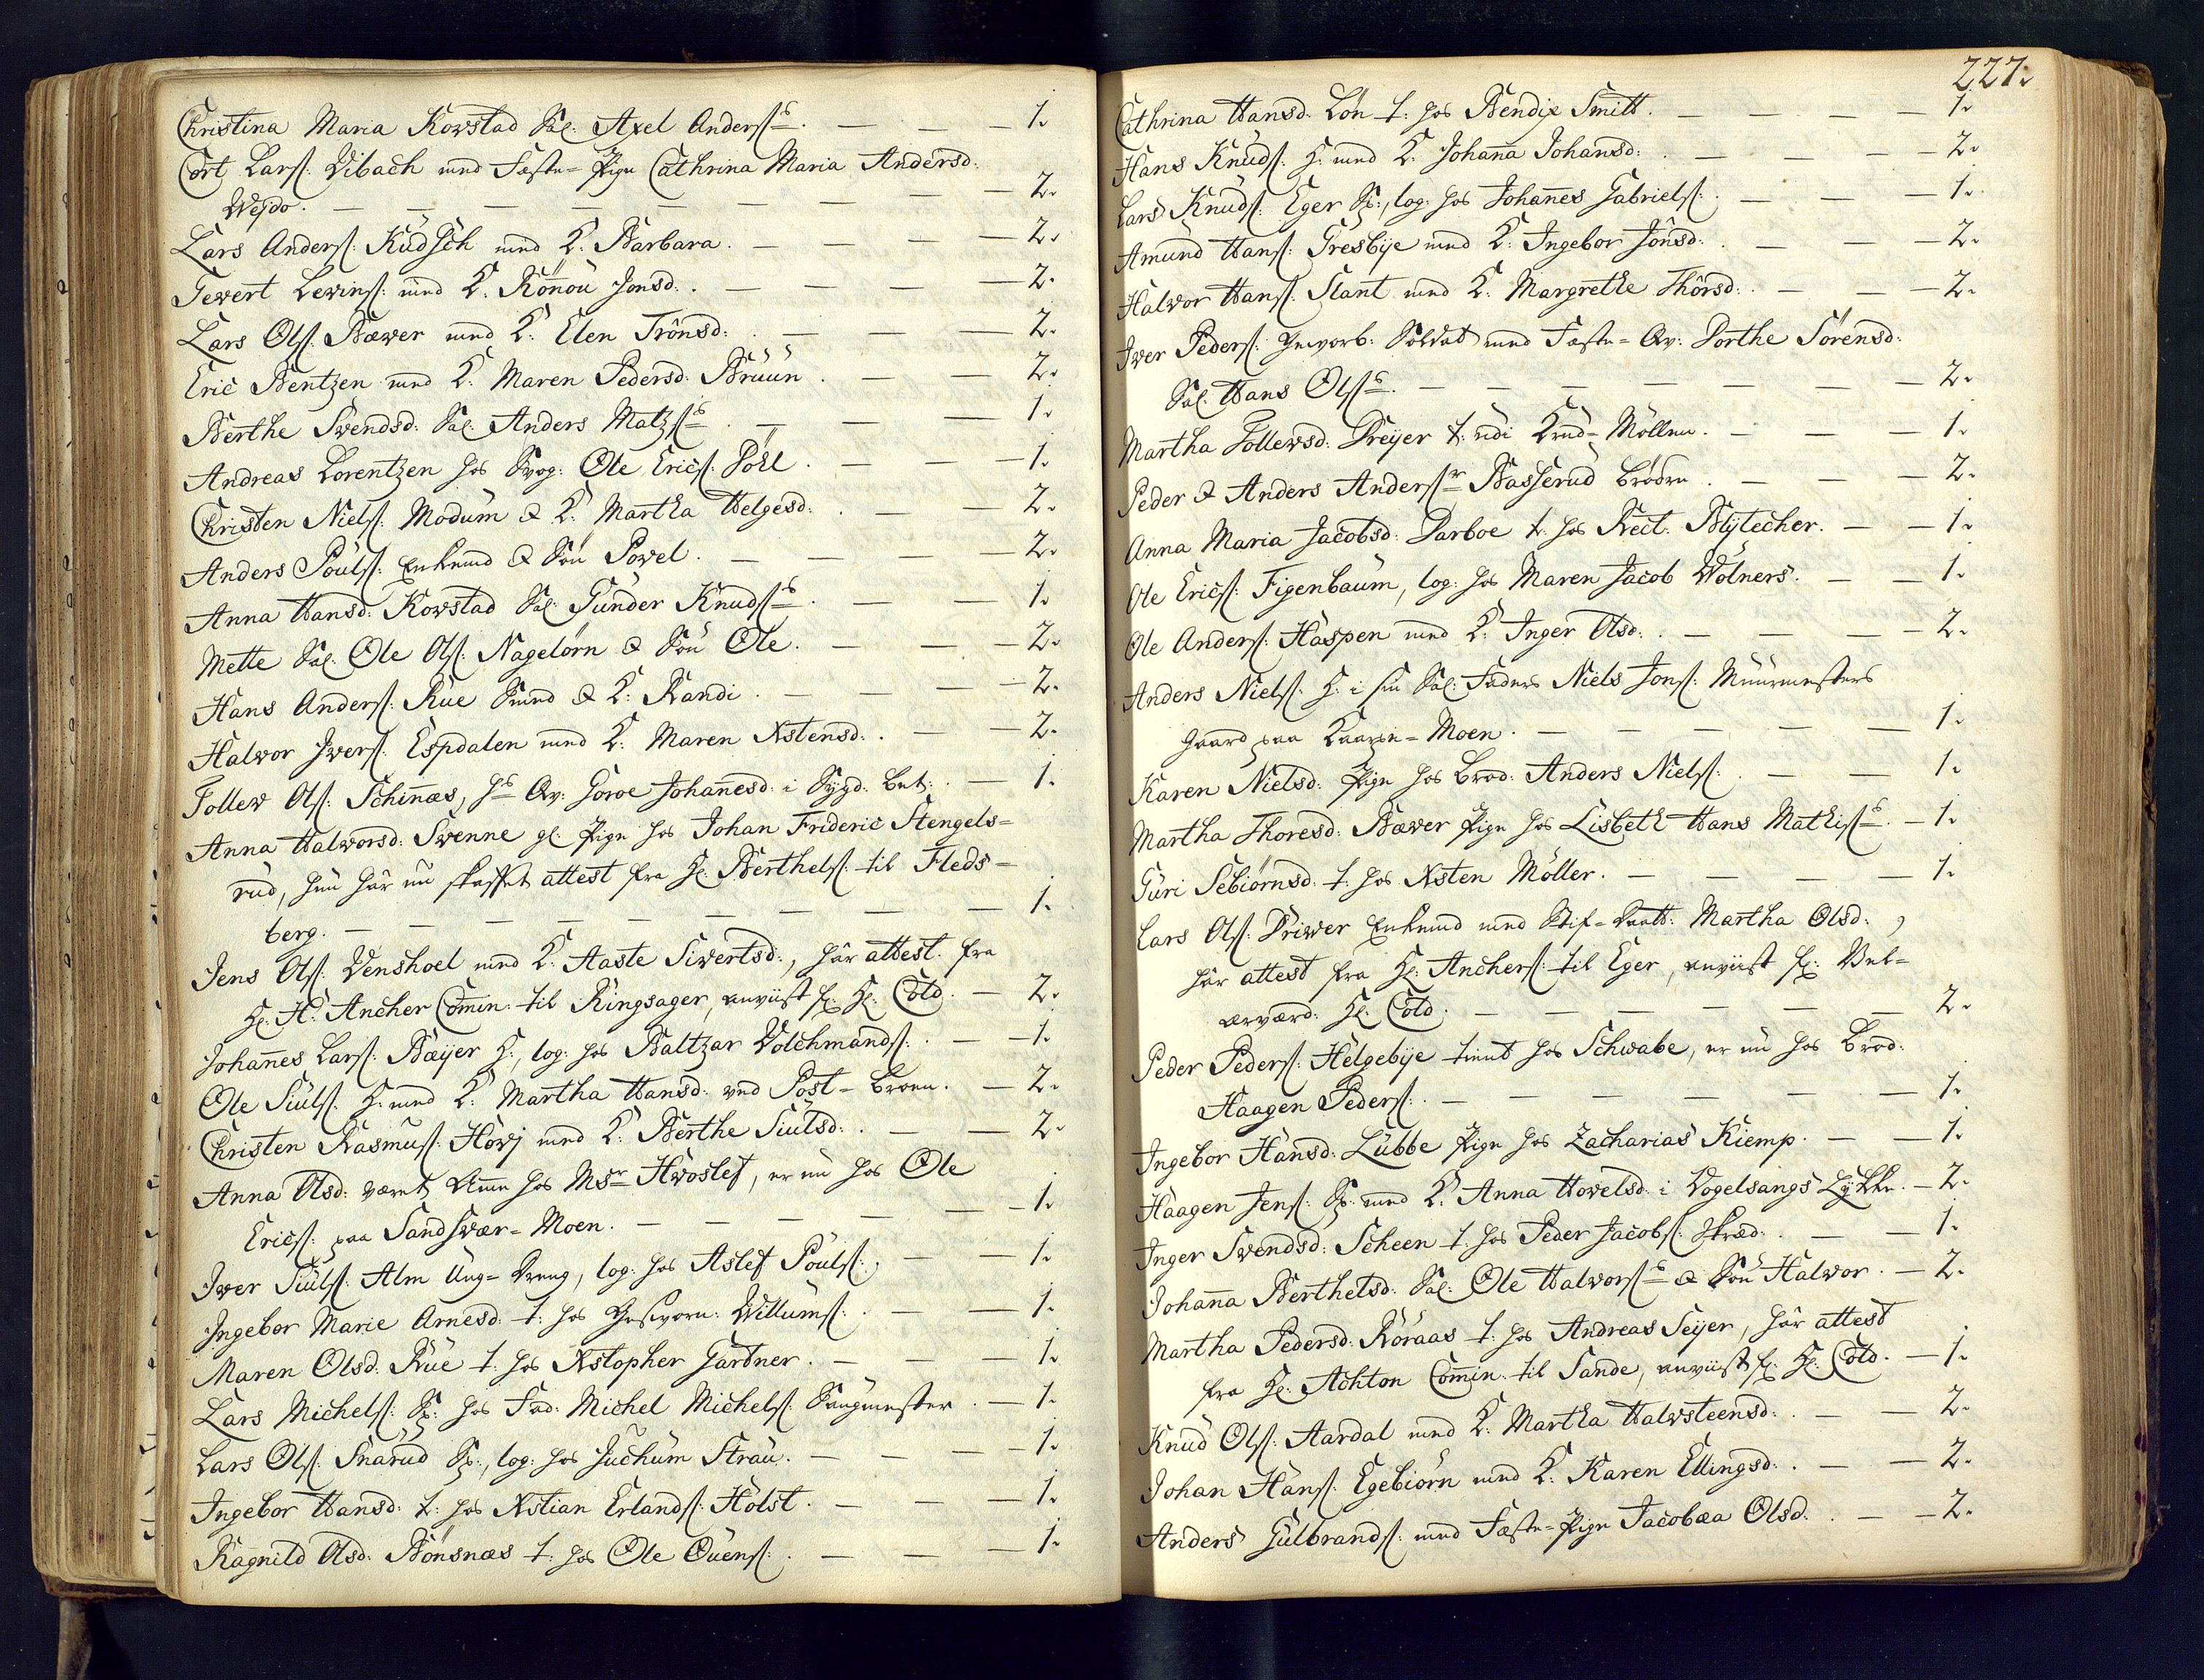 Christina Maria Kowstad Sal: Axel Anders:ˢ. — — — 1.
Cort Lars: Vibach med Fæste-Pige Cathrina Maria Andersd:
Wejdo. — — — — — — 2.
Lars Anders: Küdsch med K: Barbara. — — — 2.
Gewert Lewins: med K: Rönnou Jonsd:. — — — 2.
Lars Ols: Bæwer med K: Elen Trönsd:. — — — 2.
Eric Bentzen med K: Maren Pedersd: Brüün. — — 2.
Berthe Svendsd: Sal: Anders Matzsˢ. — — — 1.
Andreas Lorentzen hos Svog: Ole Erics: Pöhl. — — — 1.
Christen Niels: Modum & K: Martha Helgesd:. — — 2.
Anders Pouls: Enkemd & Sön Powel. — — — — 2.
Anna Hansd: Kowstad Sal: Gunder Knudsˢ. — — 1.
Mette Sal: Ole Ols: Nagelörn & Sön Ole. — — — 2.
Hans Anders: Rue Smed & K: Randi. — — — 2.
Halvor Iwers: Espdalen med K: Maren Xstensd:. — — 2.
Tollew Ols: Schinæs, hs Qv: Goroe Johannesd: i Sygd: bet:. — 1.
Anna Halvorsd: Svenne gl: Pige hos Johan Frideric Stengels-
rud, hun har nu skaffet attest fra Hr: Berthels: til Fleds-
berg. — — — — — — — — 1.
Jens Ols: Venshoel med K: Aaste Siwertsd:, har attest fra
Hr: H: Ancher Comin: til Ringsager, anviist fr: Hr: Cold. — 2.
Johannes Lars: Bæijer H:, log: hos Baltzar Volchmands:. — 1.
Ole Siüls: H: med K: Martha Hansd: ved Post-broen. — 2.
Christen Rasmus: Howj med K: Berthe Siülsd:. — — 2.
Anna Olsd: været Amme hos Msr Hwoslef, er nu hos Ole
Erics: paa Sandswær-Moen. — — — — — 1.
Iwer Siüls: Alm Ung-Dreng, log: hos Aslef Pouls:, — — 1.
Ingebor Marie Arnesd: t: hos Gesvorn: Willums:. — — 1.
Maren Olsd: Rue t: hos Xstopher Gartner. — — — 1.
Lars Michels: S: hos Fad: Michel Michels: Saugmester. — 1.
Lars Ols: Snarud S:, log: hos Juchum Strau. — — — 1.
Ingebor Hansd: t: hos Xstian Erlands: Holst. — — — 1.
Ragnild Olsd: Bönsnæs t: hos Ole Ouens:. — — — 1.
227.
Cathrina Hansd: Lön t: hos Bendix Smitt. — — — — 1.
Hans Knuds: H: med K: Johanna Johansd:. — — — 2.
Lars Knuds: Eger S:, log: hos Johannes Gabriels:. — — — 1.
Amund Hans: Gresbije med K: Ingebor Jonsd:. — — — 2.
Halvor Hans: Slant med K: Margrethe Thorsd:. — — — 2.
Iver Peders: Gevorb: Soldat med Fæste-Qv: Dorthe Sörensd:
Sal: Hans Olsˢ. — — — — — — — 2.
Martha Tollewsd: Dreijer t: udi Krud-Möllen. — — — 1.
Peder & Anders Andersr Basserud brödre. — — — 2.
Anna Maria Jacobsd: Darboe t: hos Rect: Blytecher. — — 1.
Ole Erics: Figenbaum, log: hos Maren Jacob Wölners. — — 1.
Ole Anders: Haspen med K: Inger Olsd:. — — — — 2.
Anders Niels: H: i sin Sal: Faders Niels Jons: Muurmesters
gaard paa Kaaper-Moen. — — — — — 1.
Karen Nielsd: Pige hos brod: Anders Niels:. — — — 1.
Martha Thoresd: Bæwer Pige hos Lisbeth Hans Mathisˢ. — 1.
Guri Sebiörnsd: t: hos Xsten Möller. — — — — 1.
Lars Ols: Driwer Enkemd med Stif-Datt: Martha Olsd:,
har attest fra Hr: Anchers: til Eger, anviist fr: Vel-
ærværd: Hr: Cold. — — — — — — 2.
Peder Peders: Helgebije tient hos Schwabe, er nu hos brod:
Haagen Peders:. — — — — — — 1.
Ingebor Hansd: Lubbe Pige hos Zacharias Kiemp. — — 1.
Haagen Jens: S: med K: Anna Howelsd: i Vogelsangs Løkke. — 2.
Inger Svendsd: Scheen t: hos Peder Jacobs: Skræd:. — — 1.
Johanna Berthelsd: Sal: Ole Halvorsˢ & Sön Halvor. — 2.
Martha Pedersd: Röraas t: hos Andreas Seijer, har attest
fra Hr: Achton Comin: til Sande, anviist fr: Hr: Cold. — 1.
Knud Ols: Aardal med K: Martha Halvsteensd:. — — 2.
Johan Hans: Egebiörn med K: Karen Ellingsd:. — — 2.
Anders Gulbrands: med Fæste-Pige Jacobæa Olsd:. — — 2.